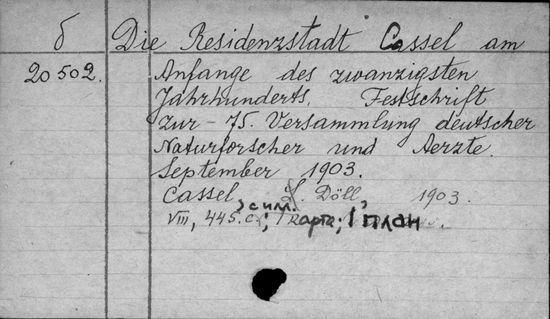 б Die Residenzstadt Cassel am
20502. Anfange des zwanzigsten
Jahrhunderts. Festschrift
zur 75. Versammlung deutscher
Naturforscher und Aerzte.
September 1903.
Cassel, L. Döll, 1903.
VIII, 445 с., с илл.; 1 карта; 1 план